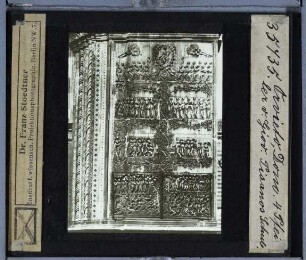 Dr. Franz Stoedtner
Institut f. wissensch. Projektionsphotographie, Berlin NW. 7.
35435. Orvieto, Domo. 4 Pfei
Pisanos Schul